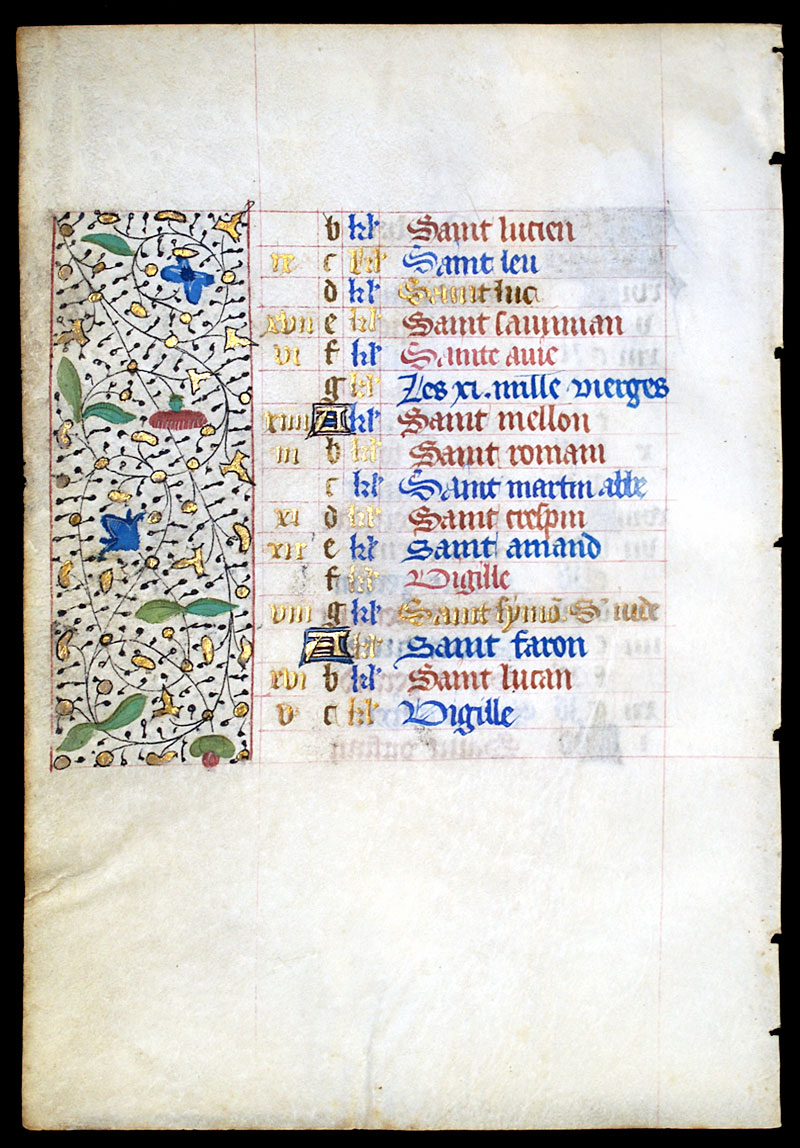 b kl Saint lucien
ix c kl Saint leu
d kl Saint luc
xvii e kl Saint saiunian
vi f kl Sainte auie
g kl Les xi. mille vierges
xiiii A kl Saint mellon
iii b kl Saint romain
c kl Saint martin abbe
xi d kl Saint crespin
xix e kl Saint amand
f kl Vigille
viii g kl Saint symõ S iude
A kl Saint faron
xvi b kl Saint lucan
v c kl Vigille